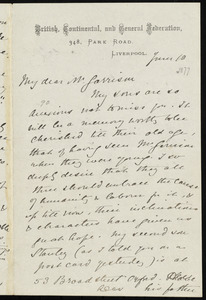 British, Continental, and General Federation,
348, PARK ROAD,
LIVERPOOL.
June 10
1877
My dear Mr Garrison
My sons are so
anxious not to miss you. It
will be a memory worthy to be
cherished till their old age,
that of having seen Mr Garrison
when they were young. I so
deeply desire that they all
three should embrace the cause
of humanity & labour for it, &
their inclinations and
characters have given us
such hope. My second son
Stanley (as I told you in a
post card yesterday) is at
53 Broad Street Oxford.
his father